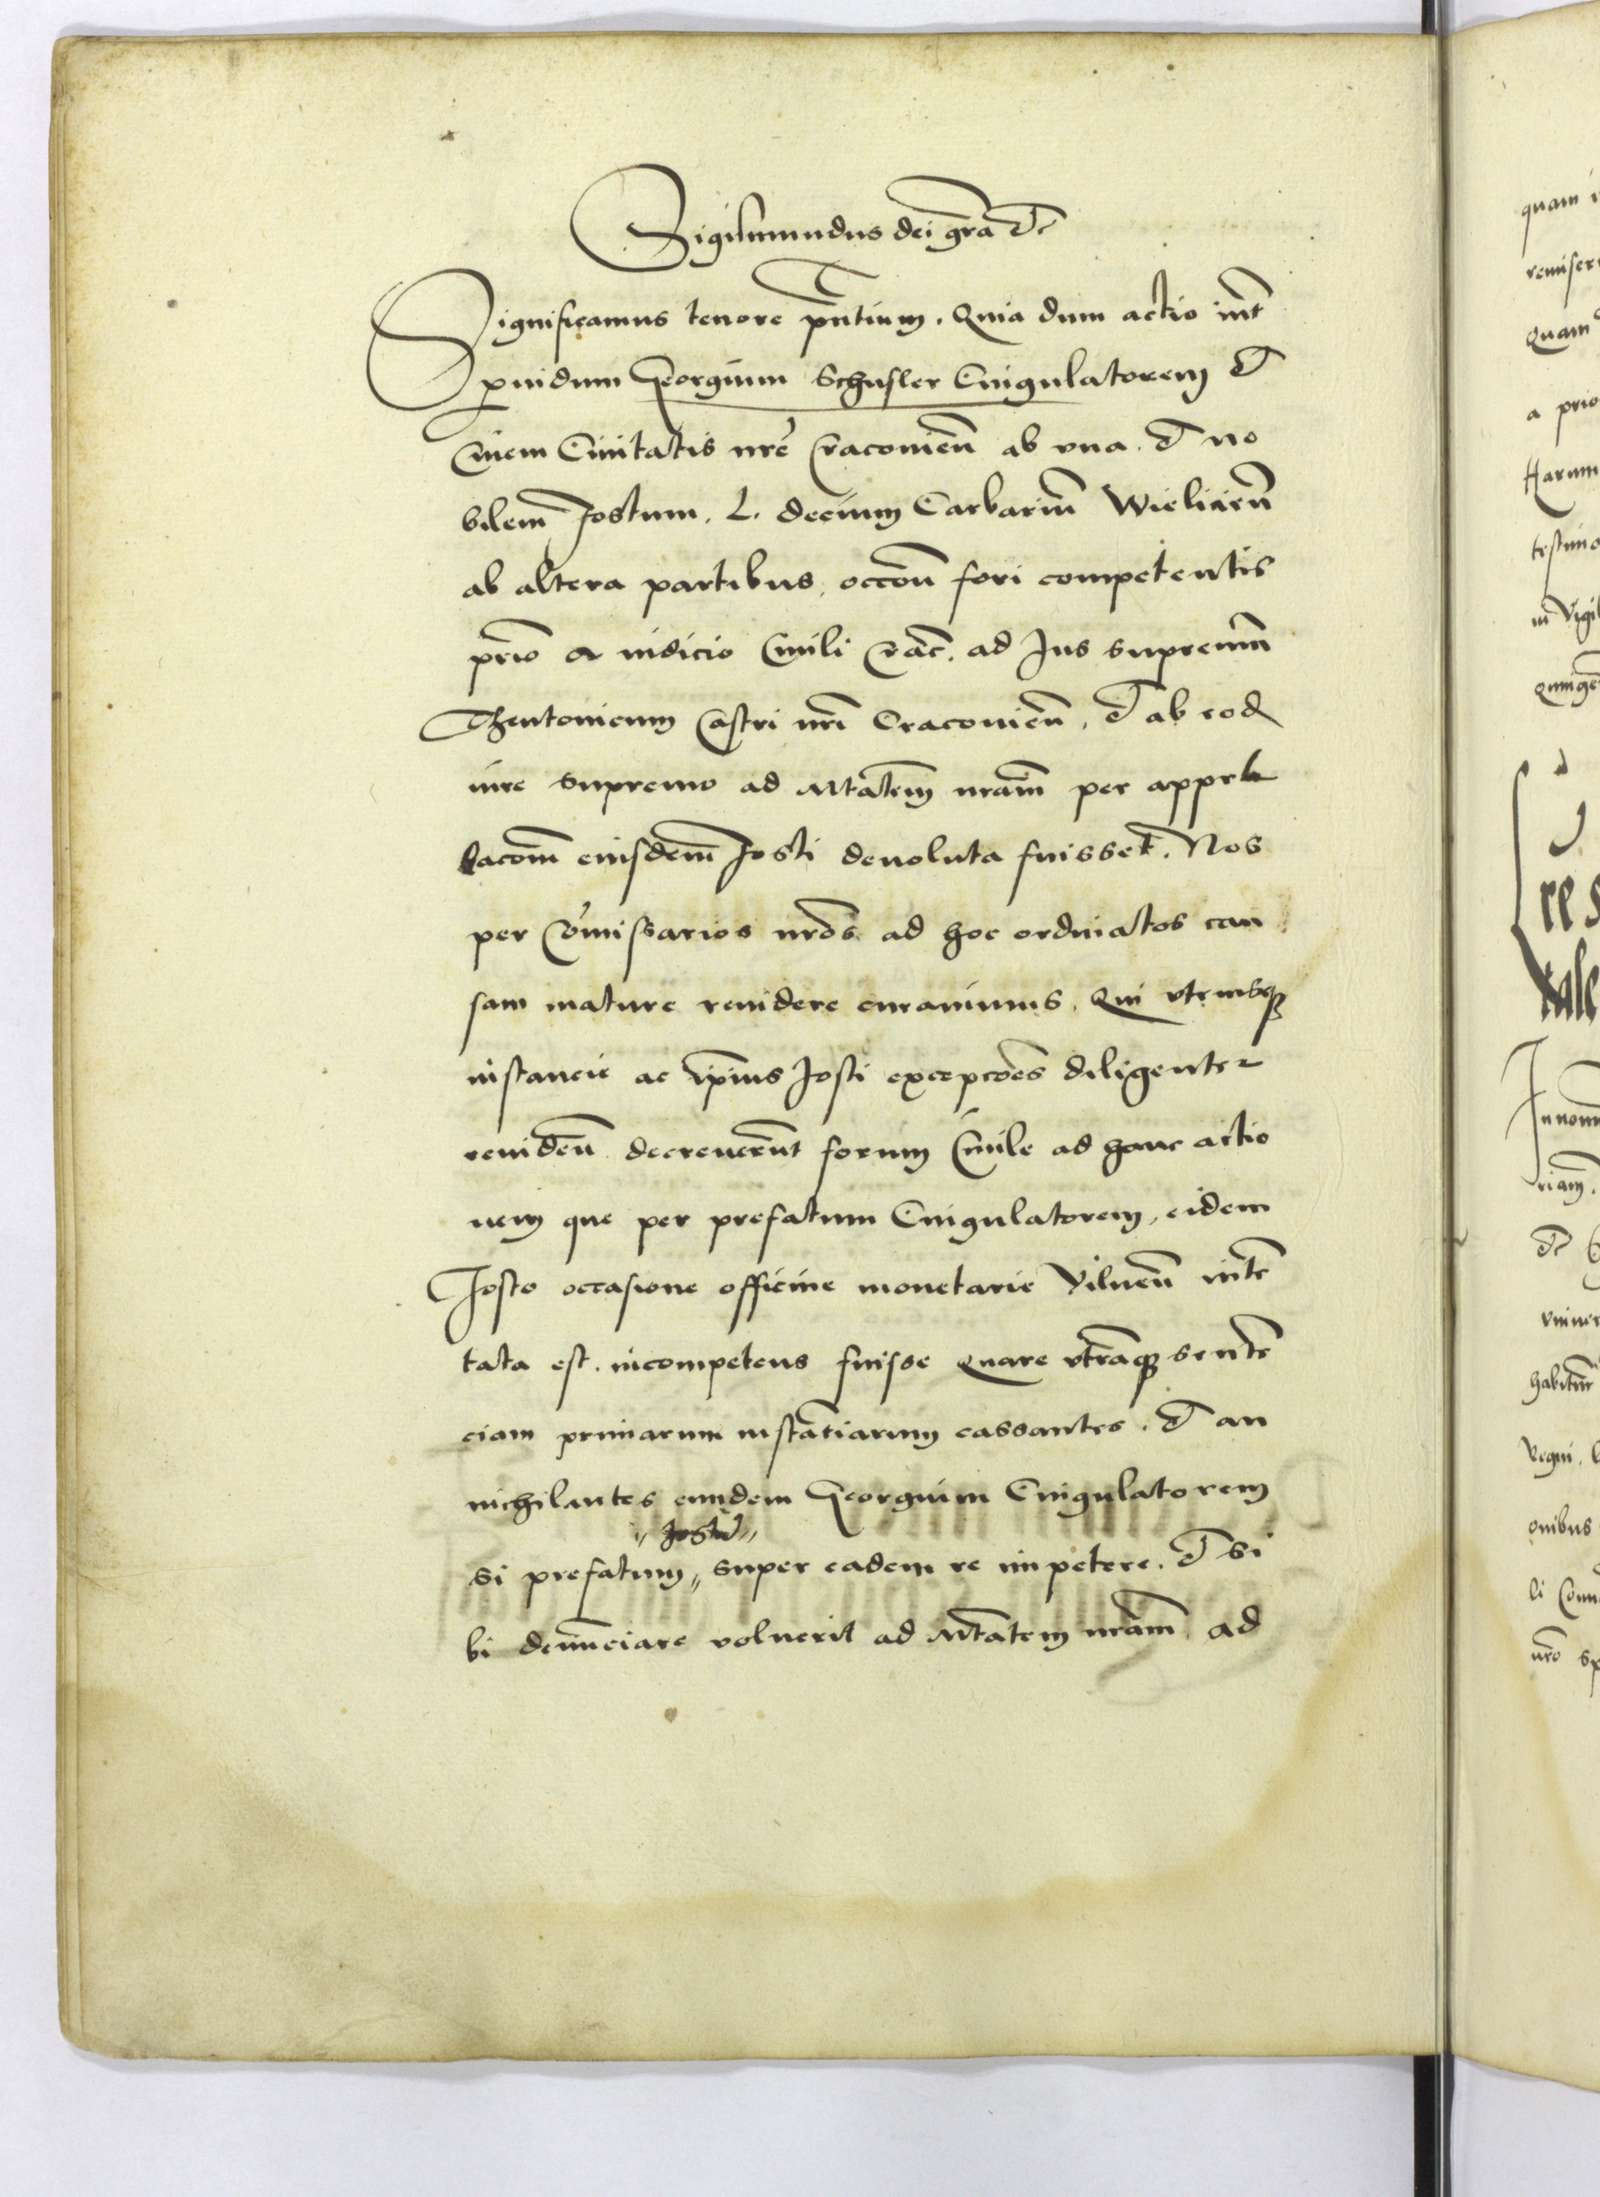 Sigismundus dei gra etc
Significamus tenore pntium. Quia dum actio int
prouidum Georgium Schusler Cingulatorem et
Ciuem Ciuitatis nre Cracouien ab vna. et no
bilem Jostum. L. decium Carbarium Wielicien
ab altera partibus, occon fori competentis
prio a iudicio Ciuili Crac. ad Jus supremum
Theutonicum Castri nri Cracouien, et ab eod
iure supremo ad Mtatem nram per appel
lacom eiusdem Josti deuoluta fuisset. Nos
per Comissarios nros ad hoc ordinatos cau
sam mature reuidere curauimus. Qui vtriusq
instancie ac ipius Josti excepcoes diligenter
reuiden decreuerunt forum Ciuile ad hanc actio
nem que per prefatum Cingulatorem, eidem
Josto occasione officine monetarie Vilnen inte
tata est. incompetens fuisse Quare vtramq senten
ciam primarum instatiarum cassantes. et an
nichilantes eundem Georgium Cingulatorem
Jostu
si prefatum, super eadem re impetere. et si
bi denunciare voluerit ad Mtatem nram, ad
quam
a prio
Harum
re s
tale
riam.
habitur
onibus
nro sp